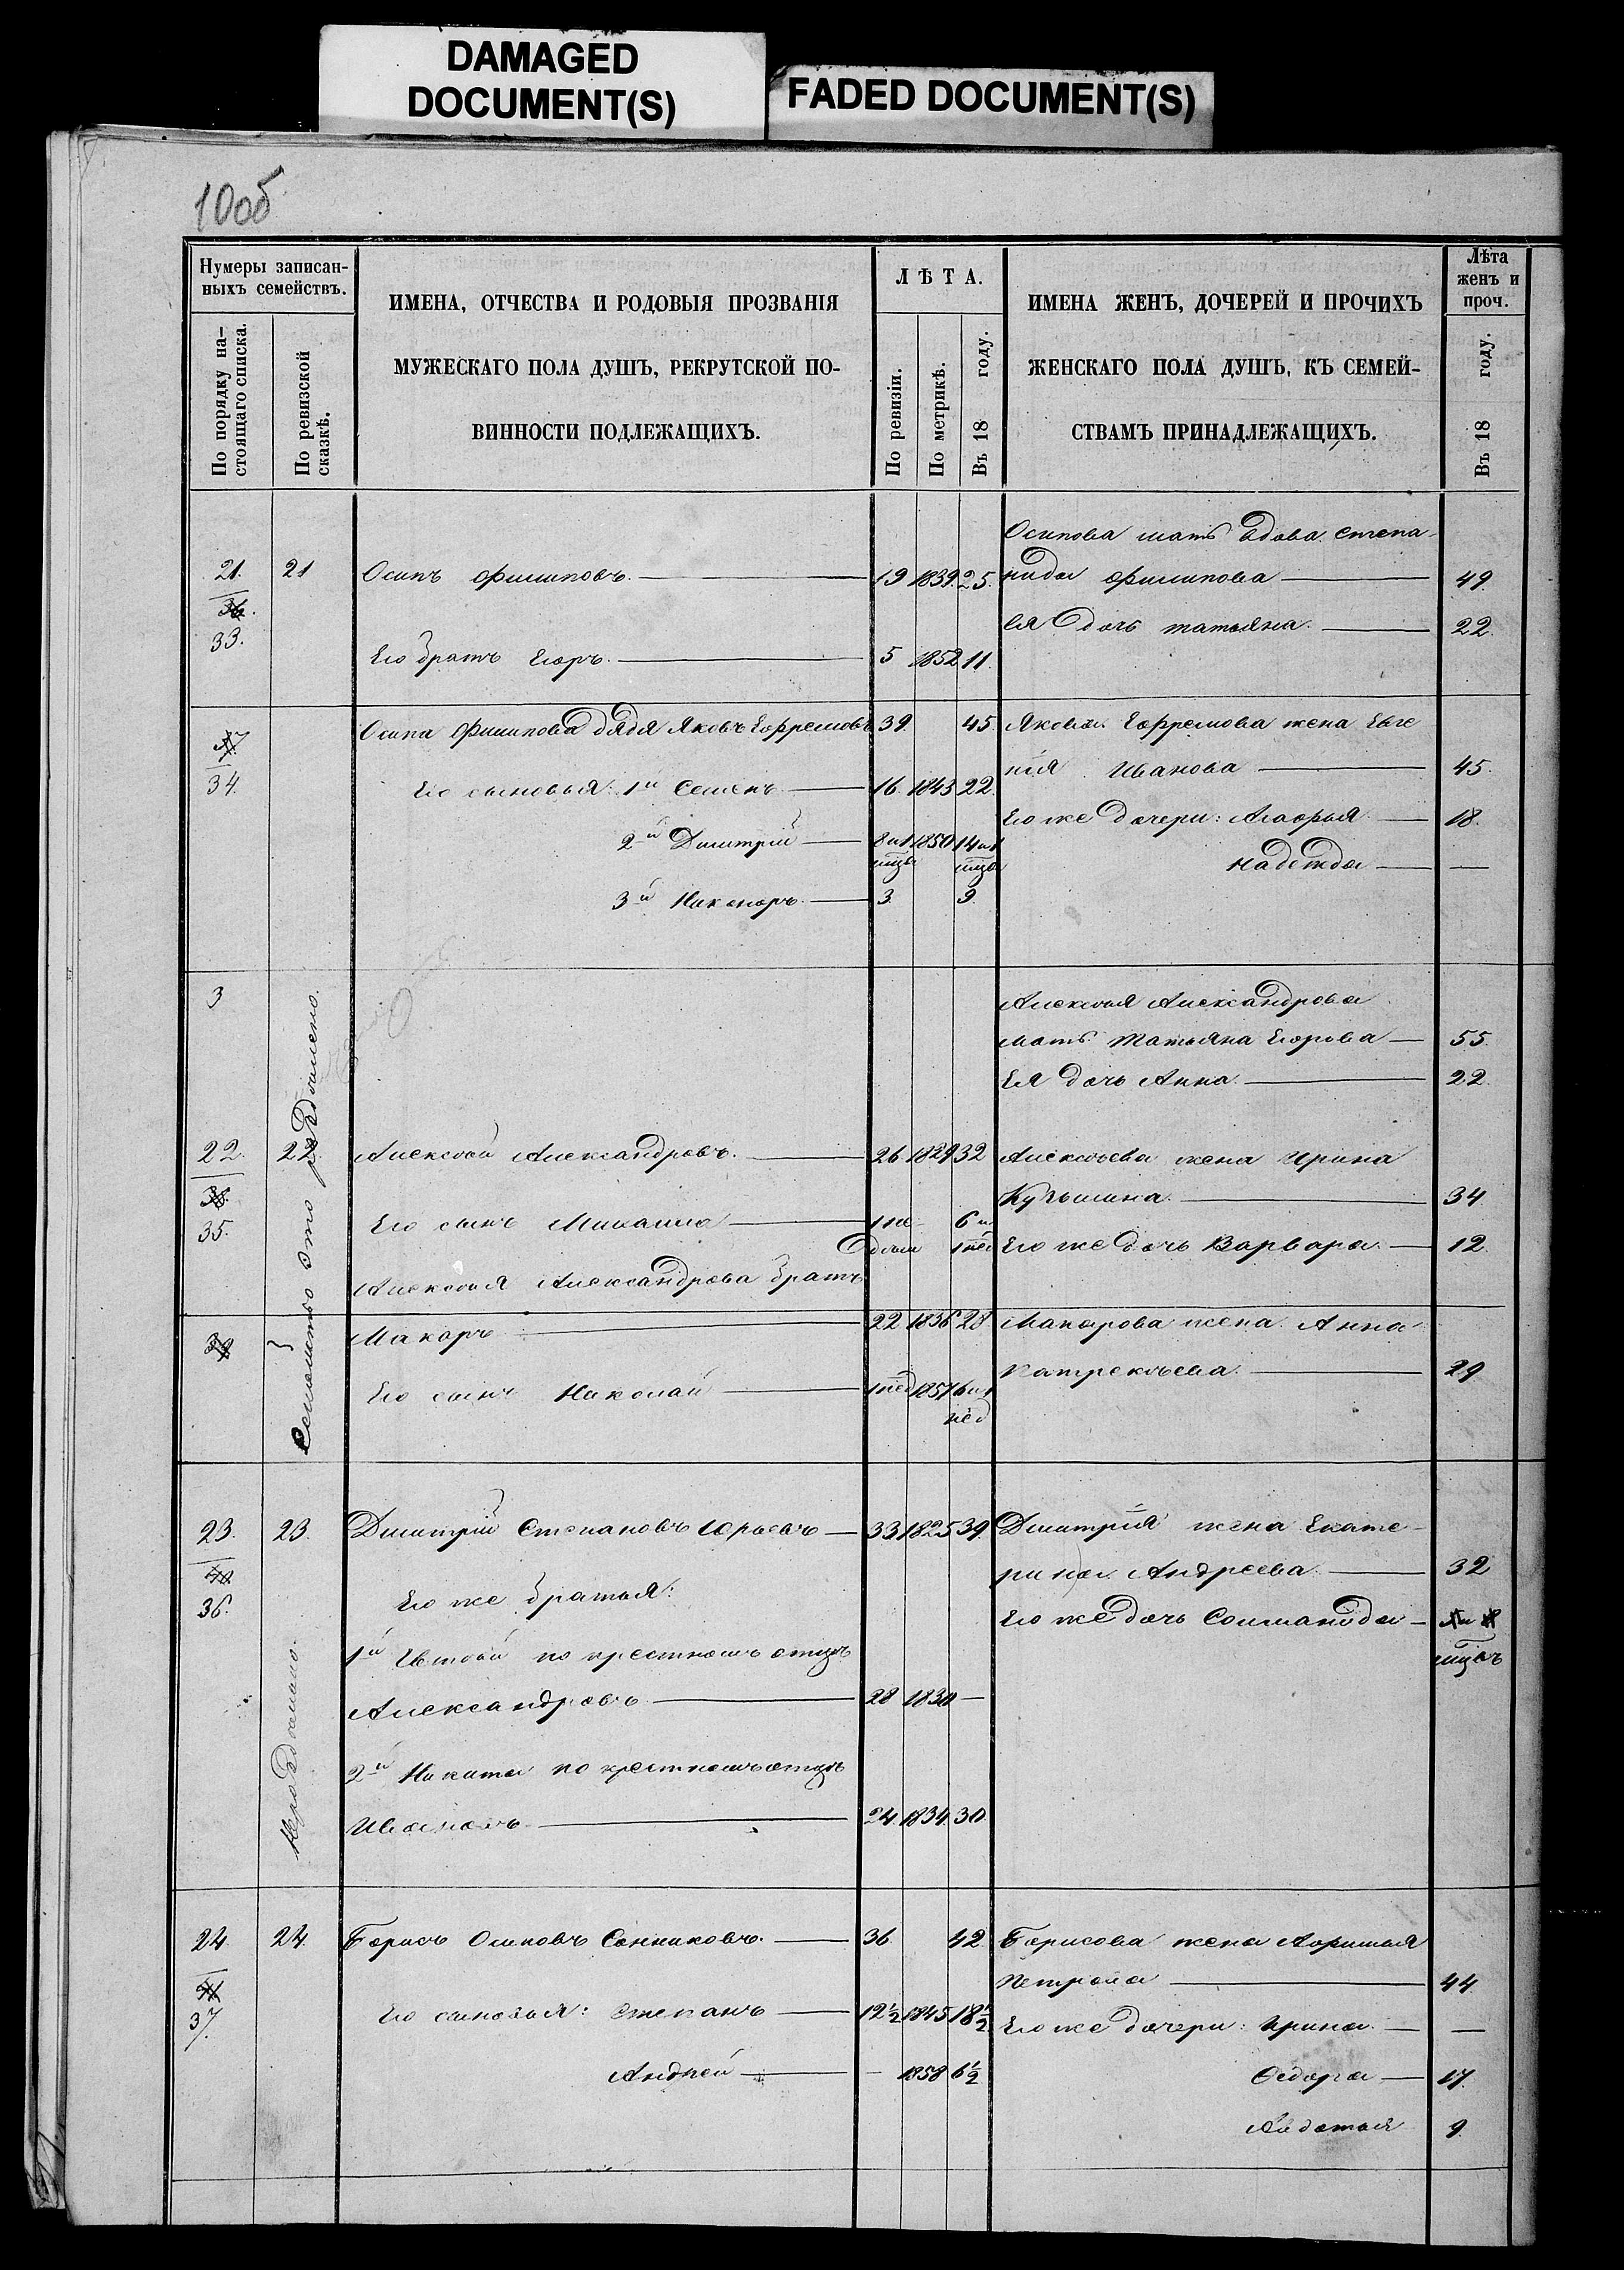 DAMAGED
DOCUMENT(S)
FADED DOCUMENT(S)
10об
Нумеры записан-
ныхъ семействъ.
По порядку на-
стоящаго списка.
По ревизской
сказкѣ.
ИМЕНА, ОТЧЕСТВА И РОДОВЫЯ ПРОЗВАНІЯ
МУЖЕСКАГО ПОЛА ДУШЪ, РЕКРУТСКОЙ ПО-
ВИННОСТИ ПОДЛЕЖАЩИХЪ.
ЛѢТА.
По ревизіи.
По метрикѣ.
Въ 18 году.
ИМЕНА ЖЕНЪ, ДОЧЕРЕЙ И ПРОЧИХЪ
ЖЕНСКАГО ПОЛА ДУШЪ, КЪ СЕМЕЙ-
СТВАМЪ ПРИНАДЛЕЖАЩИХЪ.
Лѣта
женъ и
проч.
Въ 18 году.
Осипова мать вдова Степа-
21. 21 Осипъ Филиповъ. 19 1839. 25. нида Филипова 49
36.
33.
ея дочь Татьяна. 22.
Его братъ Егоръ. 5 1852 11.
37. Осипа Филипова дядя Яковъ Ефремовъ 39. 45. Яковля Ефремова жена Евге
нія Иванова 45.
34. Его сыновья: 1й Семенъ 16. 1843 22.
Его же дочери: Агафья 18.
2й Дмитрій 8 и 1 мца 1850 14 и 1 мца
Надежда —
3й Никоноръ. 3. 9.
3
Алексѣя Александрова
мать Татьяна Егорова 55.
Ея дочь Анна. 22.
22. 22. Алексѣй Александровъ. 26. 1829 32 Алексѣева жена Ирина
38. Кузьмина. 34
35. Его сынъ Михаила 1 не-
дѣли 6 и
1 нед Его же дочь Варвара. 12.
Алексѣя Александрова братъ
Семейство это раздѣлено.
39 Макаръ 22 1836 28 Макарова жена Анна
Патрекѣева. 29
Его сынъ Николай 1 нед 1857 6 и 1
нед
23. 23. Дмитрій Степановъ Юрьевъ 33 1825 39. Дмитрія жена Екате-
40 рина Андреева. 32
36. Его же братья:
Его же дочь Соломанида
мцъ
1й по крестномъ отцѣ
Александровъ 28 1830 —
2й Никита по крестномъ отцѣ
Ивановъ 24. 1834. 30.
24. 24. Борисъ Осиповъ Санниковъ. 36. 42 Борисова жена Афимья
41 Петрова 44.
37. Его сыновья: Степанъ 12½ 1845 18½ Его же дочери: Ирина. —
Андрей — 1858 6½ Федора 17.
Авдотья 9.